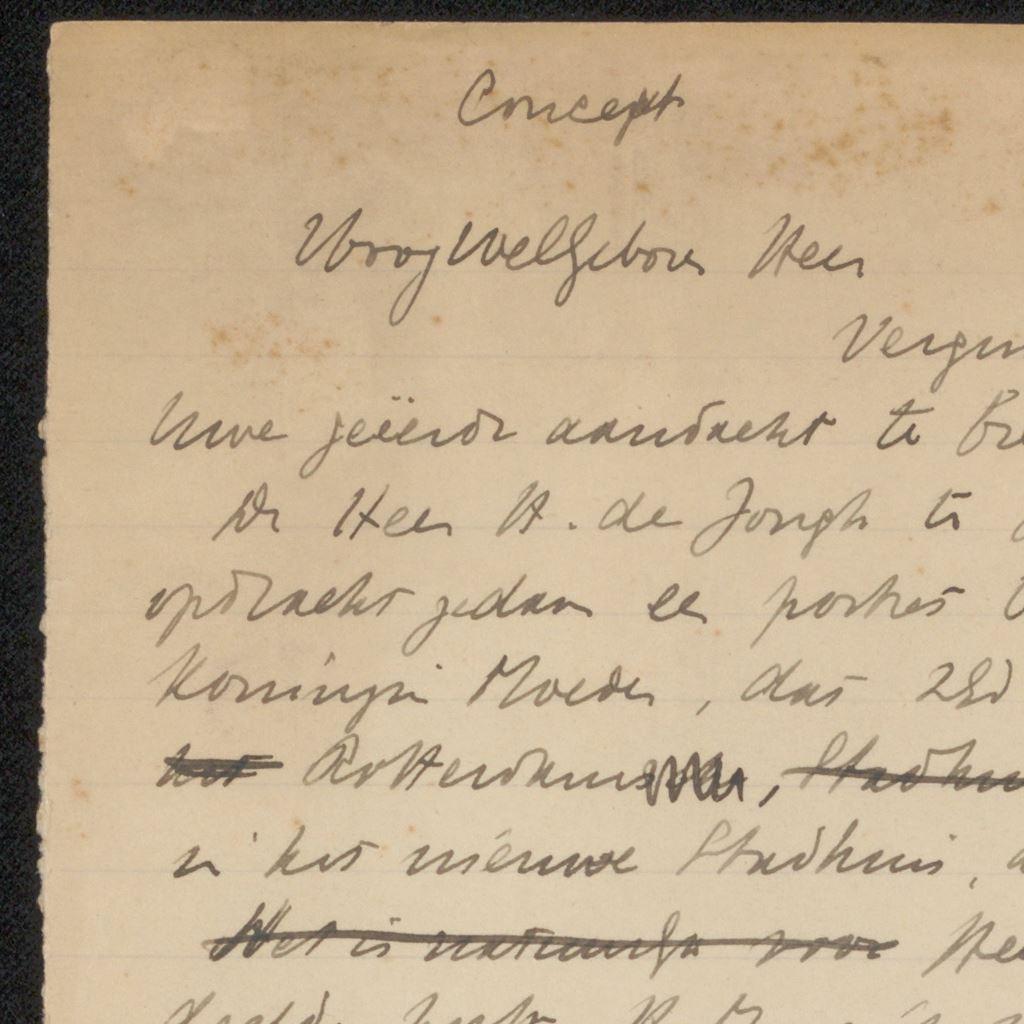 Concept
HoogWelGeboren Heer
Vergun
Uwe geëerde aandacht te
De Heer H. de Jongh te
opdracht gedaan een portret
Koningin Moeder, dat
het Rotterdam, Stadhui
in het nieuwe Stadhuis,
Het is natuurlijk voor